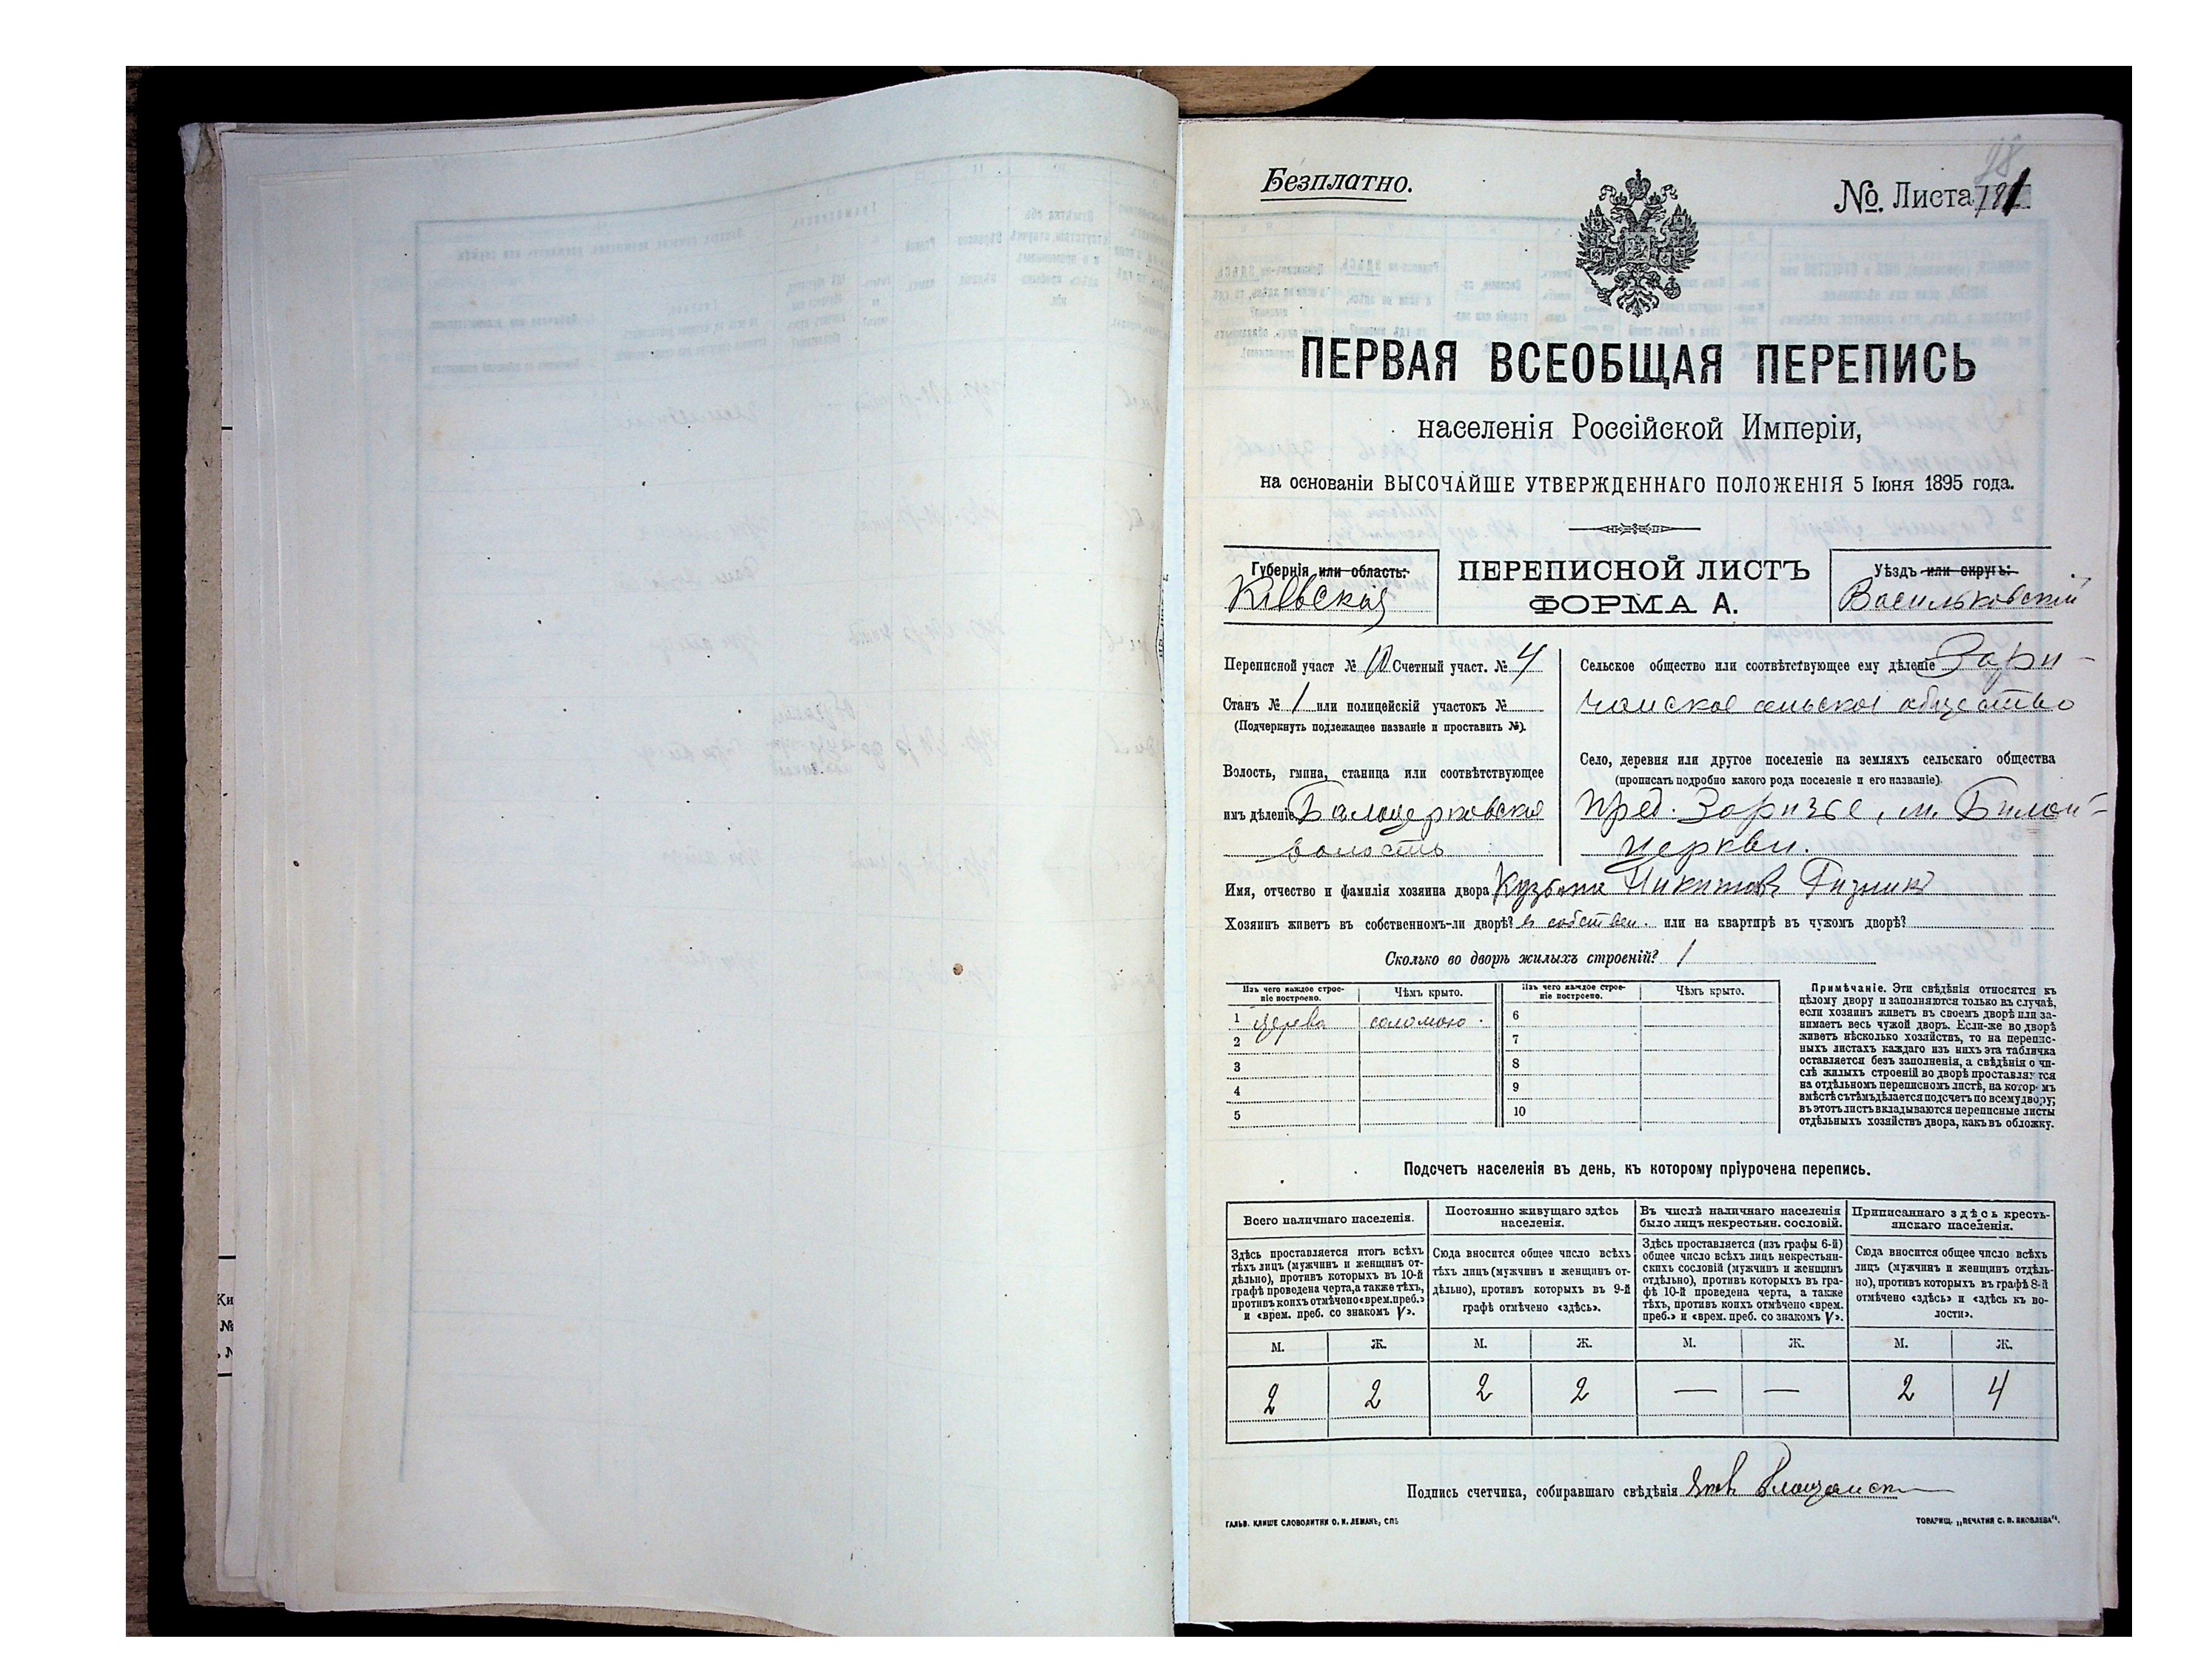 Безплатно.
28
№. Листа 181
ПЕРВАЯ ВСЕОБЩАЯ ПЕРЕПИСЬ
населенія Россійской Имперіи,
на основаніи ВЫСОЧАЙШЕ УТВЕРЖДЕННАГО ПОЛОЖЕНІЯ 5 Іюня 1895 года.
Губернія или область:
Кіевская
ПЕРЕПИСНОЙ ЛИСТЪ
ФОРМА А.
Уѣздъ или округъ:
Васильковскій
Переписной участ № Счетный участ. № 4
Станъ № 1 или полицейскій участокъ №
(Подчеркнуть подлежащее названіе и проставить №).
Волость, гмина, станица или соотвѣтствующее
имъ дѣленіе Балоцерковская
волость
Сельское общество или соотвѣтствующее ему дѣленіе Зари-
чанское сельское общество
Село, деревня или другое поселеніе на земляхъ сельскаго общества
(прописать подробно какого рода поселеніе и его названіе).
пред. Заричье, м. Билой-
Церкви.
Имя, отчество и фамилія хозяина двора Кузьма Никитовъ
Хозяинъ живетъ въ собственномъ-ли дворѣ? в собствен. или на квартирѣ въ чужомъ дворѣ?
Сколько во дворѣ жилыхъ строеній? 1
Изъ чего каждое строе-
ніе построено.
Чѣмъ крыто.
Изъ чего каждое строе-
ніе построено.
Чѣмъ крыто.
1 дерева соломою. 6
2 7
3 8
4 9
5 10
Примѣчаніе. Эти свѣдѣнія относятся къ
цѣлому двору и заполняются только въ случаѣ,
если хозяинъ живетъ въ своемъ дворѣ или за-
нимаетъ весь чужой дворъ. Если-же во дворѣ
живетъ нѣсколько хозяйствъ, то на перепис-
ныхъ листахъ каждаго изъ нихъ эта табличка
оставляется безъ заполненія, а свѣдѣнія о чи-
слѣ жилыхъ строеній во дворѣ проставляются
на отдѣльномъ переписномъ листѣ, на которомъ
вмѣстѣ съ тѣмъ дѣлается подсчетъ по всему двору;
въ этотъ листъ вкладываются переписные листы
отдѣльныхъ хозяйствъ двора, какъ въ обложку.
Подсчетъ населенія въ день, къ которому пріурочена перепись.
Всего наличнаго населенія.
Здѣсь проставляется итогъ всѣхъ
тѣхъ лицъ (мужчинъ и женщинъ от-
дѣльно), противъ которыхъ въ 10-й
графѣ проведена черта, а также тѣхъ,
противъ коихъ отмѣчено «врем. преб.»
и «врем. преб. со знакомъ V».
Постоянно живущаго здѣсь
населенія.
Сюда вносится общее число всѣхъ
тѣхъ лицъ (мужчинъ и женщинъ от-
дѣльно), противъ которыхъ въ 9-й
графѣ отмѣчено «здѣсь».
Въ числѣ наличнаго населенія
было лицъ некрестьян. сословій.
Здѣсь проставляется (изъ графы 6-й)
общее число всѣхъ лицъ некрестьян-
скихъ сословій (мужчинъ и женщинъ
отдѣльно), противъ которыхъ въ гра-
фѣ 10-й проведена черта, а также
тѣхъ, противъ коихъ отмѣчено «врем.
преб.» и «врем. преб. со знакомъ V».
Приписаннаго здѣсь кресть-
янскаго населенія.
Сюда вносится общее число всѣхъ
лицъ (мужчинъ и женщинъ отдѣль-
но), противъ которыхъ въ графѣ 8-й
отмѣчено «здѣсь» и «здѣсь къ во-
лости».
М. Ж. М. Ж. М. Ж. М. Ж.
2 2 2 2 — — 2 4
Подпись счетчика, собиравшаго свѣдѣнія
ГАЛЬВ. КЛИШЕ СЛОВОЛИТНИ О. И. ЛЕМАНЪ, СПБ
ТОВАРИЩ. „ПЕЧАТНЯ С. П. ЯКОВЛЕВА“.